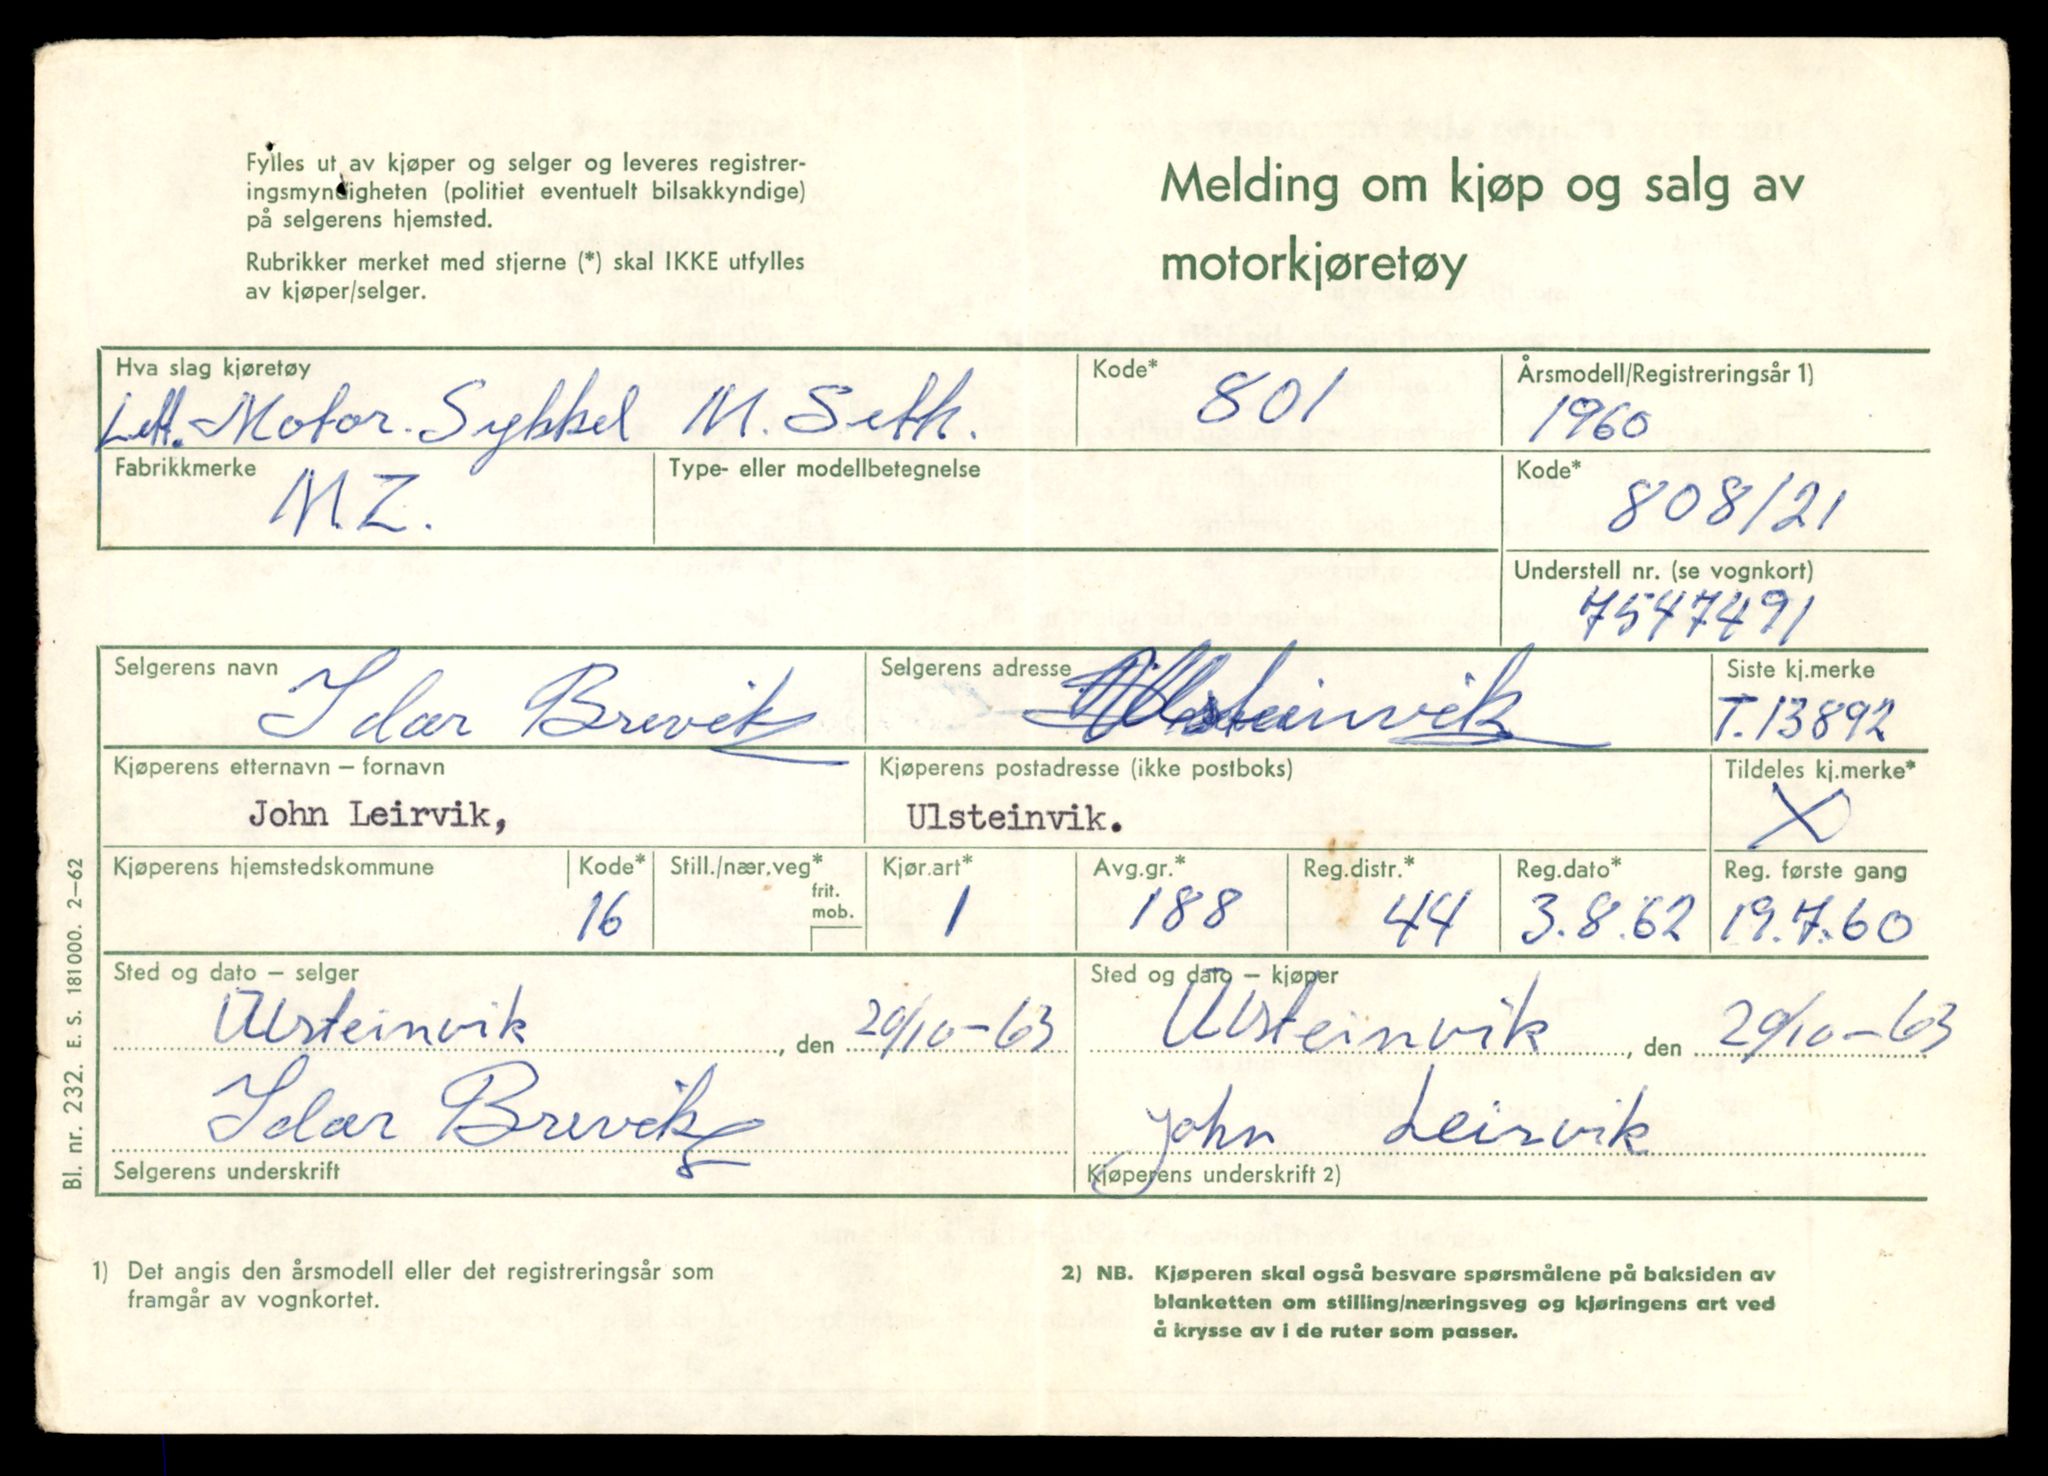 Fylles ut av kjøper og selger og leveres registrer-
ingsmyndigheten (politiet eventuelt bilsakkyndige)
på selgerens hjemsted.
Rubrikker merket med stjerne (*) skal IKKE utfylles
av kjøper/selger.
Melding om kjøp og salg av
motorkjøretøy
Hva slag kjøretøy
Lett.-Motor.Sykkel M. Seth.
Kode*
801
Årsmodell/Registreringsår 1)
1960
Fabrikkmerke
M.Z.
Type- eller modellbetegnelse
Kode*
808/21
Understell nr. (se vognkort)
7547491
Selgerens navn
Idar Brevik
Selgerens adresse
Ulsteinvik
Siste kj.merke
T.13892
Kjøperens etternavn – fornavn
John Leirvik,
Kjøperens postadresse (ikke postboks)
Ulsteinvik.
Tildeles kj.merke*
X
Kjøperens hjemstedskommune
Kode*
16
Still./nær.veg*
frit.
mob.
Kjør.art*
1
Avg.gr.*
188
Reg.distr.*
44
Reg.dato*
3.8.62
Reg. første gang
19.7.60
Sted og dato – selger
Ulsteinvik, den 20/10-63
Idar Brevik
Selgerens underskrift
Sted og dato – kjøper
Ulsteinvik, den 20/10-63
John Leirvik
Kjøperens underskrift 2)
Bl. nr. 232. E. s. 181000. 2–62
1) Det angis den årsmodell eller det registreringsår som
framgår av vognkortet.
2) NB. Kjøperen skal også besvare spørsmålene på baksiden av
blanketten om stilling/næringsveg og kjøringens art ved
å krysse av i de ruter som passer.